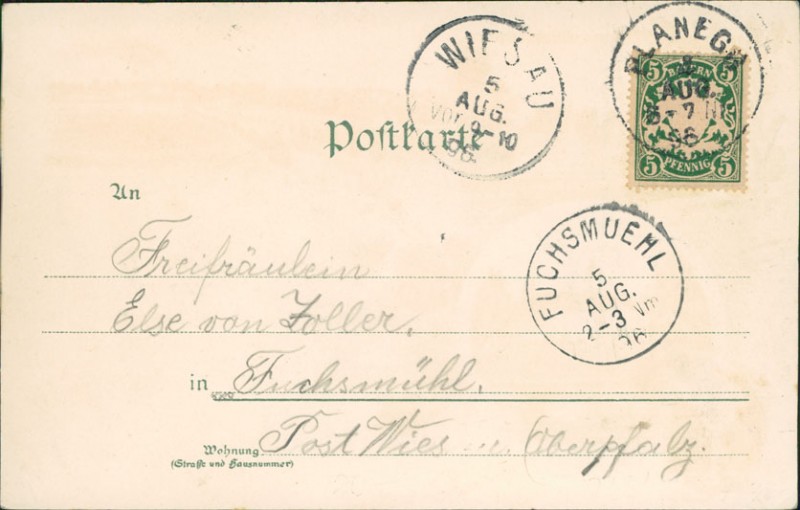 WIESAU
5
AUG.
Vor 9-10
96
PLANEGG
AUG.
6-7 N
96
5 BAYERN 5
5 PFENNIG 5
Postkarte
An
FUCHSMUEHL
5
AUG.
2-3 Vm
96
Freifräulein
Else von Zoller.
in Fuchsmühl.
Post Wies Oberpfalz.
Wohnung
(Straße und Hausnummer)